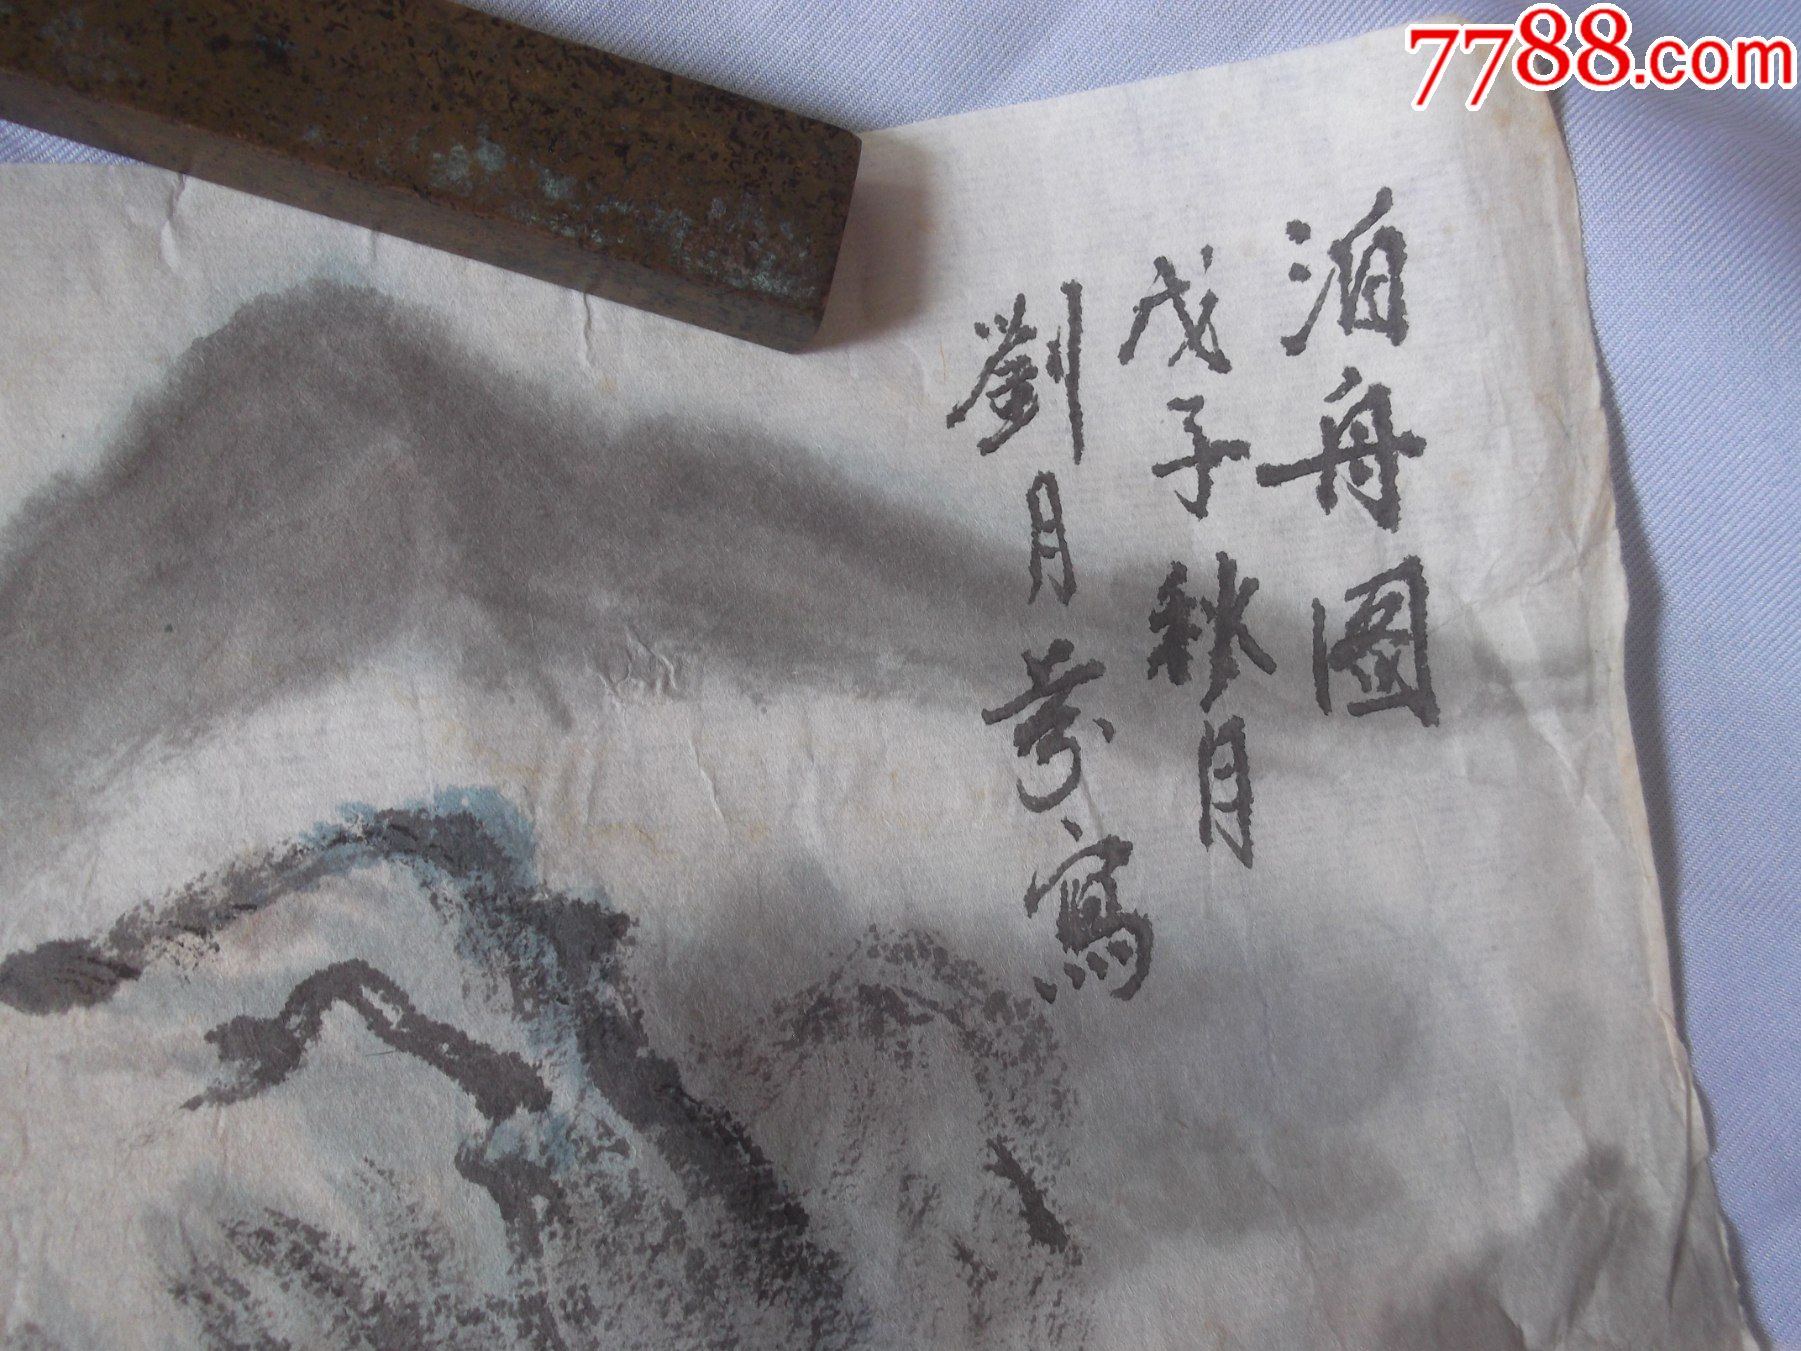 7788.com
泊舟图
戊子秋月
劉月芳寫